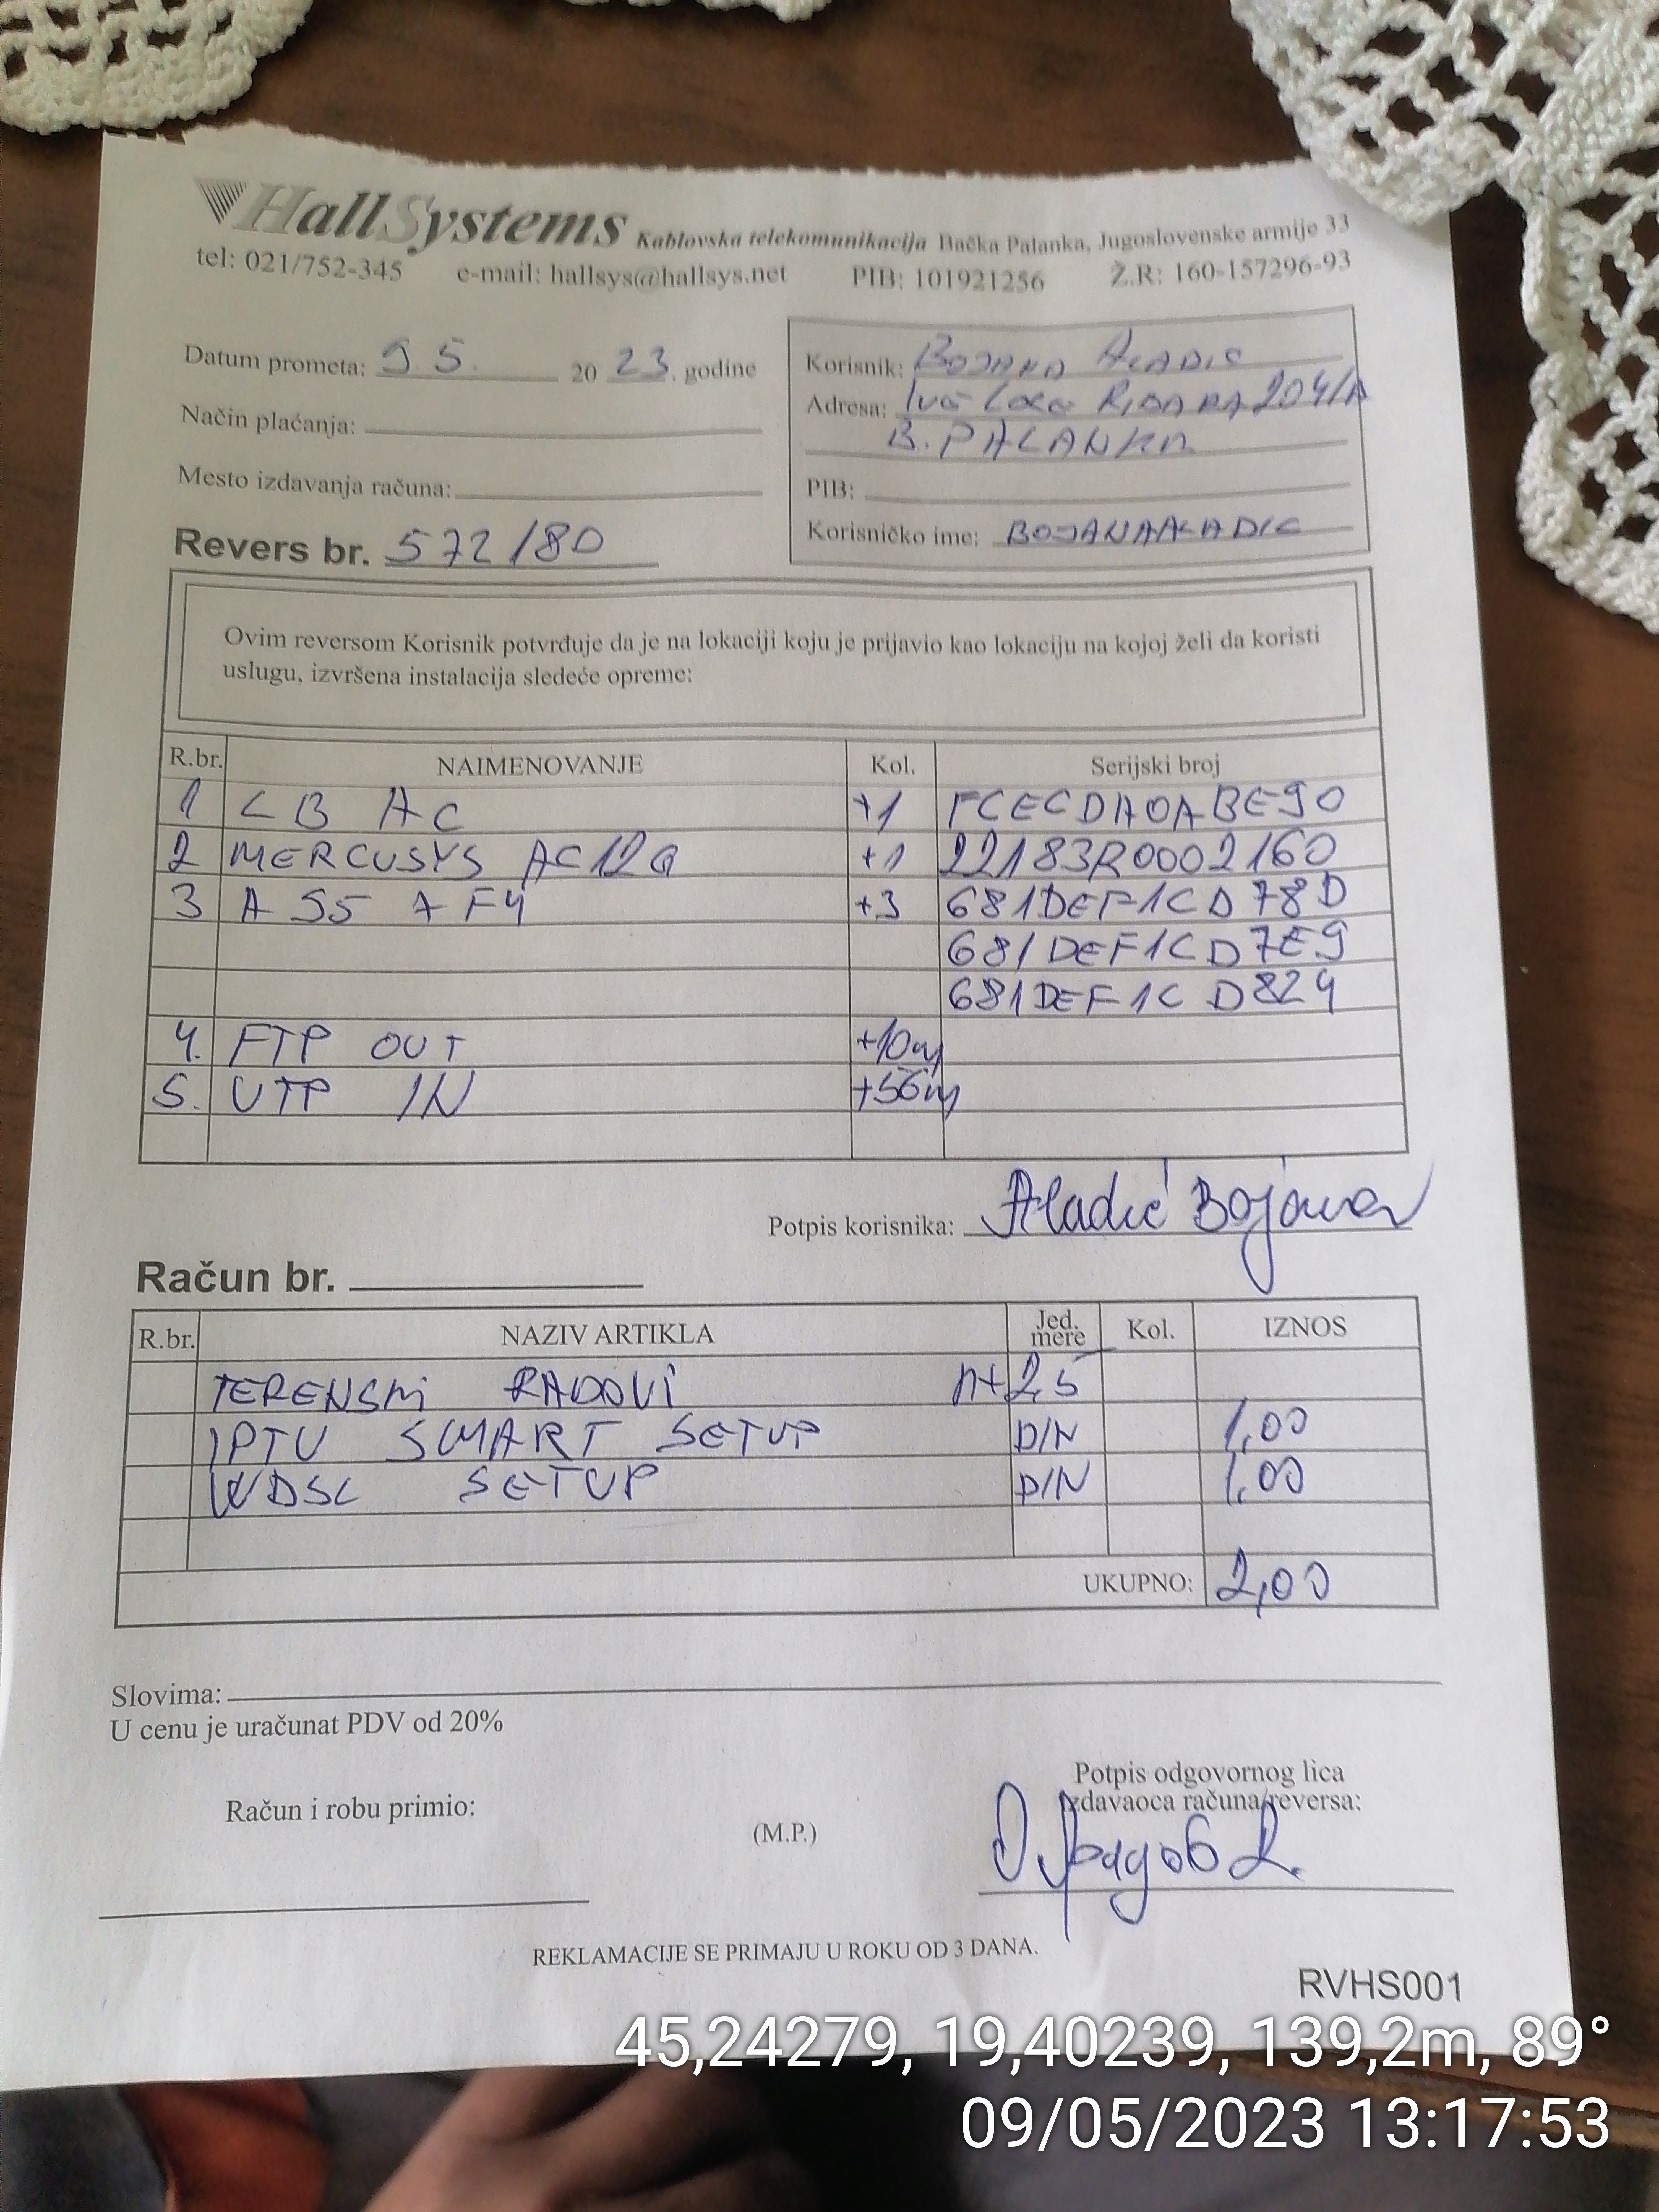 HallSystems Kablovska telekomunikacija Bačka Palanka, Jugoslovenske armije 33
tel: 021/752-345 e-mail: hallsys@hallsys.net PIB: 101921256 Ž.R: 160-157296-93
Datum prometa: 9 5. 20 23. godine
Način plaćanja:
Mesto izdavanja računa:
Revers br. 572/80
Korisnik: BOJANA ALADIC
Adresa: Ive Lole RIBARA 204/A
B. PALANKA
PIB:
Korisničko ime: BOJANAALADIC
Ovim reversom Korisnik potvrđuje da je na lokaciji koju je prijavio kao lokaciju na kojoj želi da koristi
uslugu, izvršena instalacija sledeće opreme:
R.br. NAIMENOVANJE Kol. Serijski broj
1 LB AC +1 FCECDA0ABE90
2 MERCUSYS AC12G +1 22183R0002160
3 A 95 +3 681DEF1CD78D
681DEF1CD7E9
681DEF1CD824
4. FTP OUT +10m
5. UTP IN +56m
Potpis korisnika: Aladić Bojana
Račun br.
R.br. NAZIV ARTIKLA Jed. mere Kol. IZNOS
TERENSKI RADOVI 2,5
IPTV SMART SETUP DIN 1,00
WDSL SETUP DIN 1,00
UKUPNO: 2,00
Slovima:
U cenu je uračunat PDV od 20%
Račun i robu primio:
(M.P.)
Potpis odgovornog lica
izdavaoca računa/reversa:
REKLAMACIJE SE PRIMAJU U ROKU OD 3 DANA.
RVHS001
45,24279, 19,40239, 139,2m, 89°
09/05/2023 13:17:53